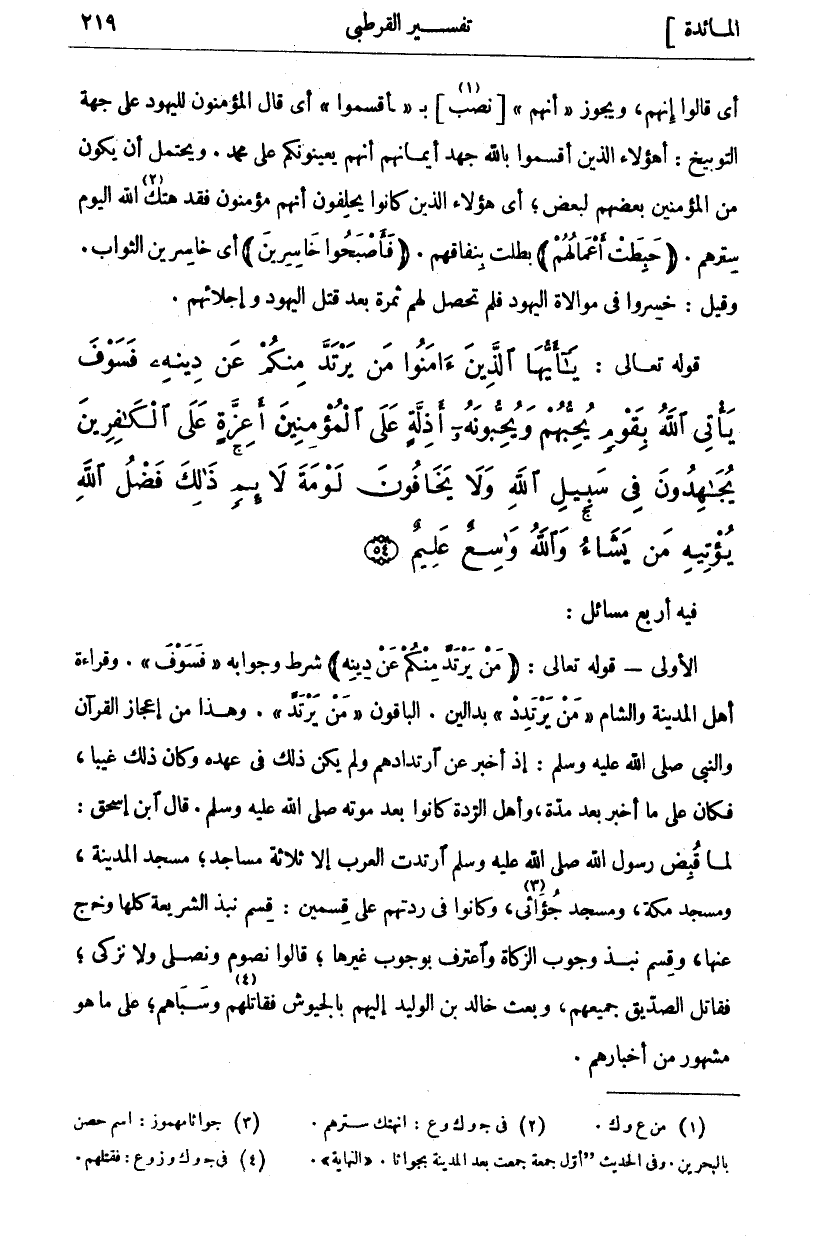 المائدة ] تفسير القرطبى ٢١٩
أى قالوا إنهم، ويجوز « أنهم » [نصب](١) بـ « ـأقسموا » أى قال المؤمنون لليهود على جهة
التوبيخ : أهؤلاء الذين أقسموا بالله جهد أيمانهم أنهم يعينونكم على محمد . ويحتمل أن يكون
من المؤمنين بعضهم لبعض؛ أى هؤلاء الذين كانوا يحلفون أنهم مؤمنون فقد هتك(٢) الله اليوم
سترهم . ﴿ حَبِطَتْ أَعْمَالُهُمْ ﴾ بطلت بنفاقهم . ﴿ فَأَصْبَحُوا خَاسِرِينَ ﴾ أى خاسرين الثواب .
وقيل : خسروا فى موالاة اليهود فلم تحصل لهم ثمرة بعد قتل اليهود وإجلائهم .
قوله تعالى : يَٰٓأَيُّهَا ٱلَّذِينَ ءَامَنُوا مَن يَرْتَدَّ مِنكُمْ عَن دِينِهِۦ فَسَوْفَ
يَأْتِى ٱللَّهُ بِقَوْمٍ يُحِبُّهُمْ وَيُحِبُّونَهُۥٓ أَذِلَّةٍ عَلَى ٱلْمُؤْمِنِينَ أَعِزَّةٍ عَلَى ٱلْكَٰفِرِينَ
يُجَٰهِدُونَ فِى سَبِيلِ ٱللَّهِ وَلَا يَخَافُونَ لَوْمَةَ لَآئِمٍ ۚ ذَٰلِكَ فَضْلُ ٱللَّهِ
يُؤْتِيهِ مَن يَشَآءُ ۚ وَٱللَّهُ وَٰسِعٌ عَلِيمٌ ﴿٥٤﴾
فيه أربع مسائل :
الأولى — قوله تعالى : ﴿ مَنْ يَرْتَدَّ مِنْكُمْ عَنْ دِينِهِ ﴾ شرط وجوابه « فَسَوْفَ » . وقراءة
أهل المدينة والشام « مَنْ يَرْتَدِدْ » بدالين . الباقون « مَنْ يَرْتَدَّ » . وهذا من إعجاز القرآن
والنبى صلى الله عليه وسلم : إذ أخبر عن ٱرتدادهم ولم يكن ذلك فى عهده وكان ذلك غيبا ،
فكان على ما أخبر بعد مدّة ، وأهل الرّدة كانوا بعد موته صلى الله عليه وسلم . قال ٱبن إسحق :
لما قُبِض رسول الله صلى الله عليه وسلم ٱرتدت العرب إلا ثلاثة مساجد ؛ مسجد المدينة ،
ومسجد مكة ، ومسجد جُؤَاثَى(٣) ، وكانوا فى ردتهم على قسمين : قسم نبذ الشريعة كلها وخرج
عنها ، وقسم نبذ وجوب الزكاة وٱعترف بوجوب غيرها ؛ قالوا نصوم ونصلى ولا نزكى ؛
فقاتل الصدّيق جميعهم ، وبعث خالد بن الوليد إليهم بالجيوش فقاتلهم(٤) وسَبَاهم ؛ على ما هو
مشهور من أخبارهم .
(١) من ع و ك . (٢) فى جـ و ك و ع : انهتك سترهم . (٣) جواثا مهموز : اسم حصن
بالبحرين . وفى الحديث "أوّل جمعة جمعت بعد المدينة بجواثا . «النهاية» . (٤) فى جـ و ك و ز و ع : فقتلهم .